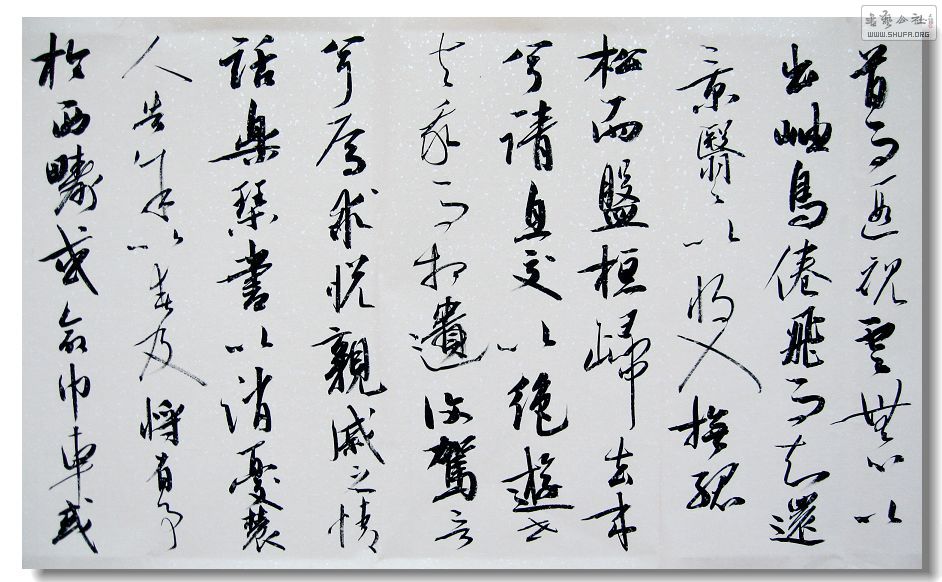 首而遐觀雲無心以
出岫鳥倦飛而知還
景翳々以將入撫孤
松而盤桓歸去來
兮請息交以絕遊世
与我而相遺復駕言
兮焉求悅親戚之情
話樂琴書以消憂農
人告余以春及將有事
於西疇或命巾車或
WWW.SHUFA.ORG